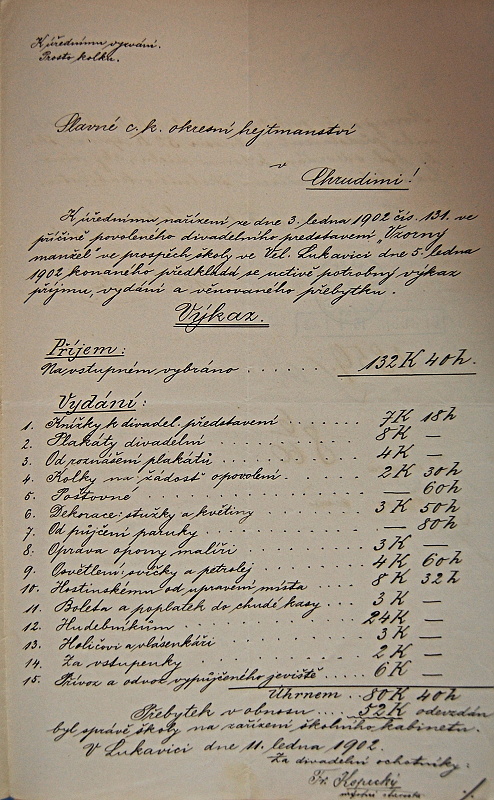 K úřednímu vyzvání.
Prosto kolku.
Slavné c. k. okresní hejtmanství
v
Chrudimi!
K úřednímu nařízení ze dne 3. ledna 1902 čís. 131. ve
příčině povoleného divadelního představení „Vzorný
manžel" ve prospěch školy ve Vel. Lukavici dne 5. ledna
1902 konaného předkládá se uctivě potřebný výkaz
příjmu, vydání a věnovaného přebytku.
Výkaz.
Příjem:
Na vstupném vybráno . . . . . . 132 K 40 h.
Vydání:
1. Knížky k divadel. představení . . . . . . 7 K 18 h
2. Plakáty divadelní . . . . . . 8 K —
3. Od roznášení plakátů . . . . . . 4 K —
4. Kolky na žádost o povolení . . . . . . 2 K 30 h
5. Poštovné . . . . . . — 60 h
6. Dekorace: stužky a květiny . . . . . . 3 K 50 h
7. Od půjčení paruky . . . . . . — 80 h
8. Oprava opony malíři . . . . . . 3 K —
9. Osvětlení: svíčky a petrolej . . . . . . 4 K 60 h
10. Hostinskému od upravení místa . . . . 8 K 32 h
11. Boleta a poplatek do chudé kasy . . . 3 K —
12. Hudebníkům . . . . . . 24 K —
13. Holičovi a vlásenkáři . . . . . . 3 K —
14. Za vstupenky . . . . . . 2 K —
15. Přívoz a odvoz vypůjčeného jeviště . . . 6 K —
Úhrnem . . 80 K 40 h
Přebytek v obnosu . . . . 52 K odevzdán
byl správě školy na zařízení školního kabinetu.
V Lukavici dne 11. ledna 1902.
Za divadelní ochotníky:
Fr. Kopecký